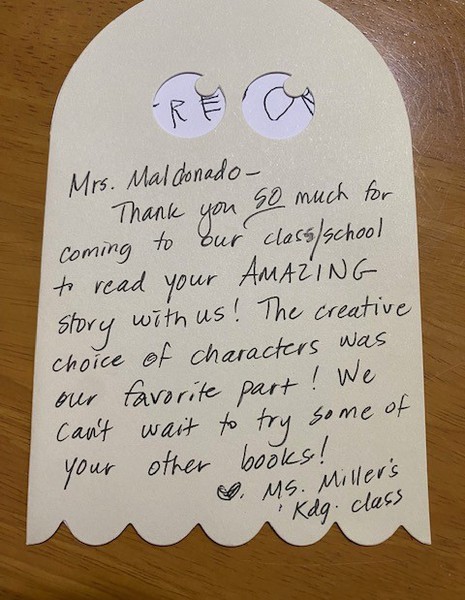 RE
Mrs. Maldonado -
Thank you SO much for
coming to our class/school
to read your AMAZING
story with us! The creative
choice of characters was
our favorite part! We
can't wait to try some of
your other books!
♡, Ms. Miller's
Kdg. class